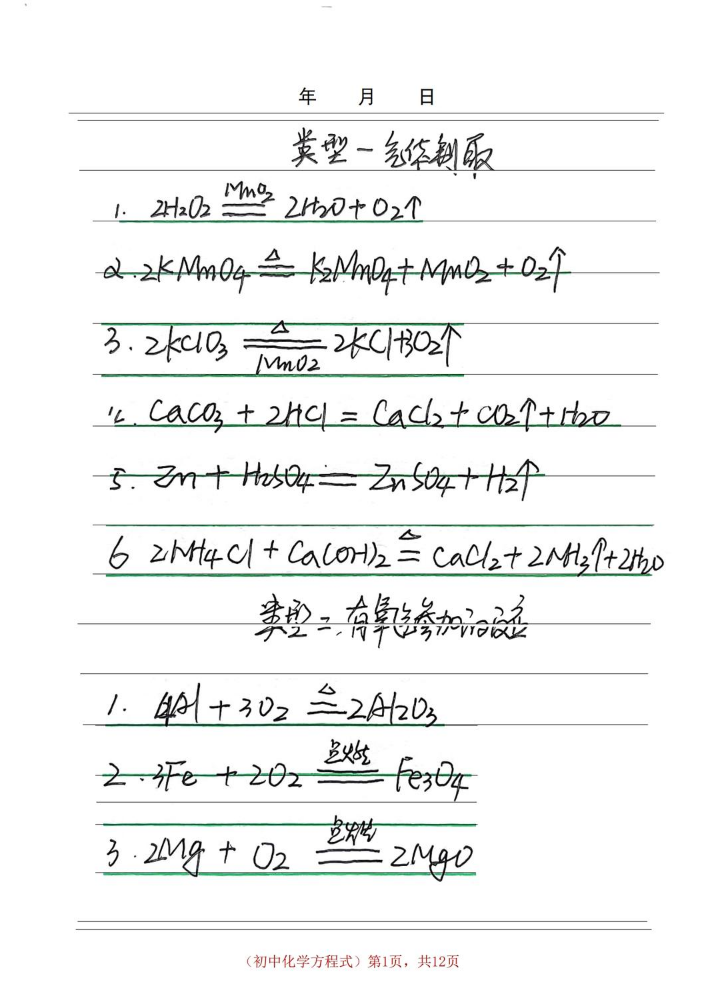 年 月 日
类型一 气体制取
1. 2H₂O₂ =MnO₂= 2H₂O + O₂↑
2. 2KMnO₄ =△= K₂MnO₄ + MnO₂ + O₂↑
3. 2KClO₃ =△/MnO₂= 2KCl+3O₂↑
4. CaCO₃ + 2HCl = CaCl₂ + CO₂↑ + H₂O
5. Zn + H₂SO₄ = ZnSO₄ + H₂↑
6 2NH₄Cl + Ca(OH)₂ =△= CaCl₂ + 2NH₃↑ + 2H₂O
类型二.有氧气参加的反应
1. 4Al + 3O₂ =△= 2Al₂O₃
2. 3Fe + 2O₂ =点燃= Fe₃O₄
3. 2Mg + O₂ =点燃= 2MgO
（初中化学方程式）第1页，共12页